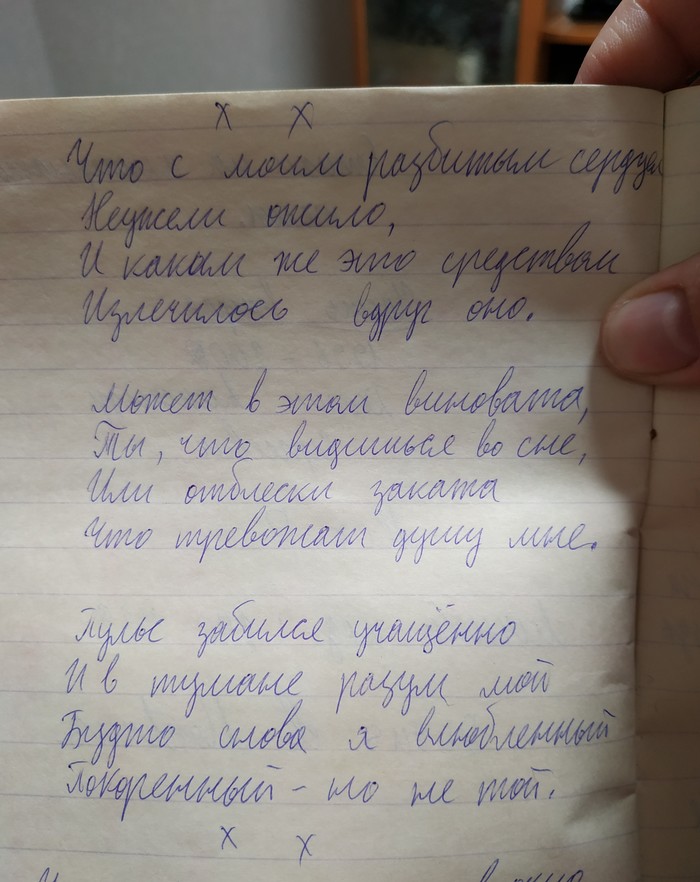 х х
Что с моим разбитым сердцем
Неужели ожило,
И каким же это средством
Излечилось вдруг оно.
Может в этом виновата,
Ты, что видишься во сне,
Или отблески заката
Что тревожат душу мне.
Пульс забился учащённо
И в тумане разум мой
Будто снова я влюбленный
Покоренный – но не той.
х х